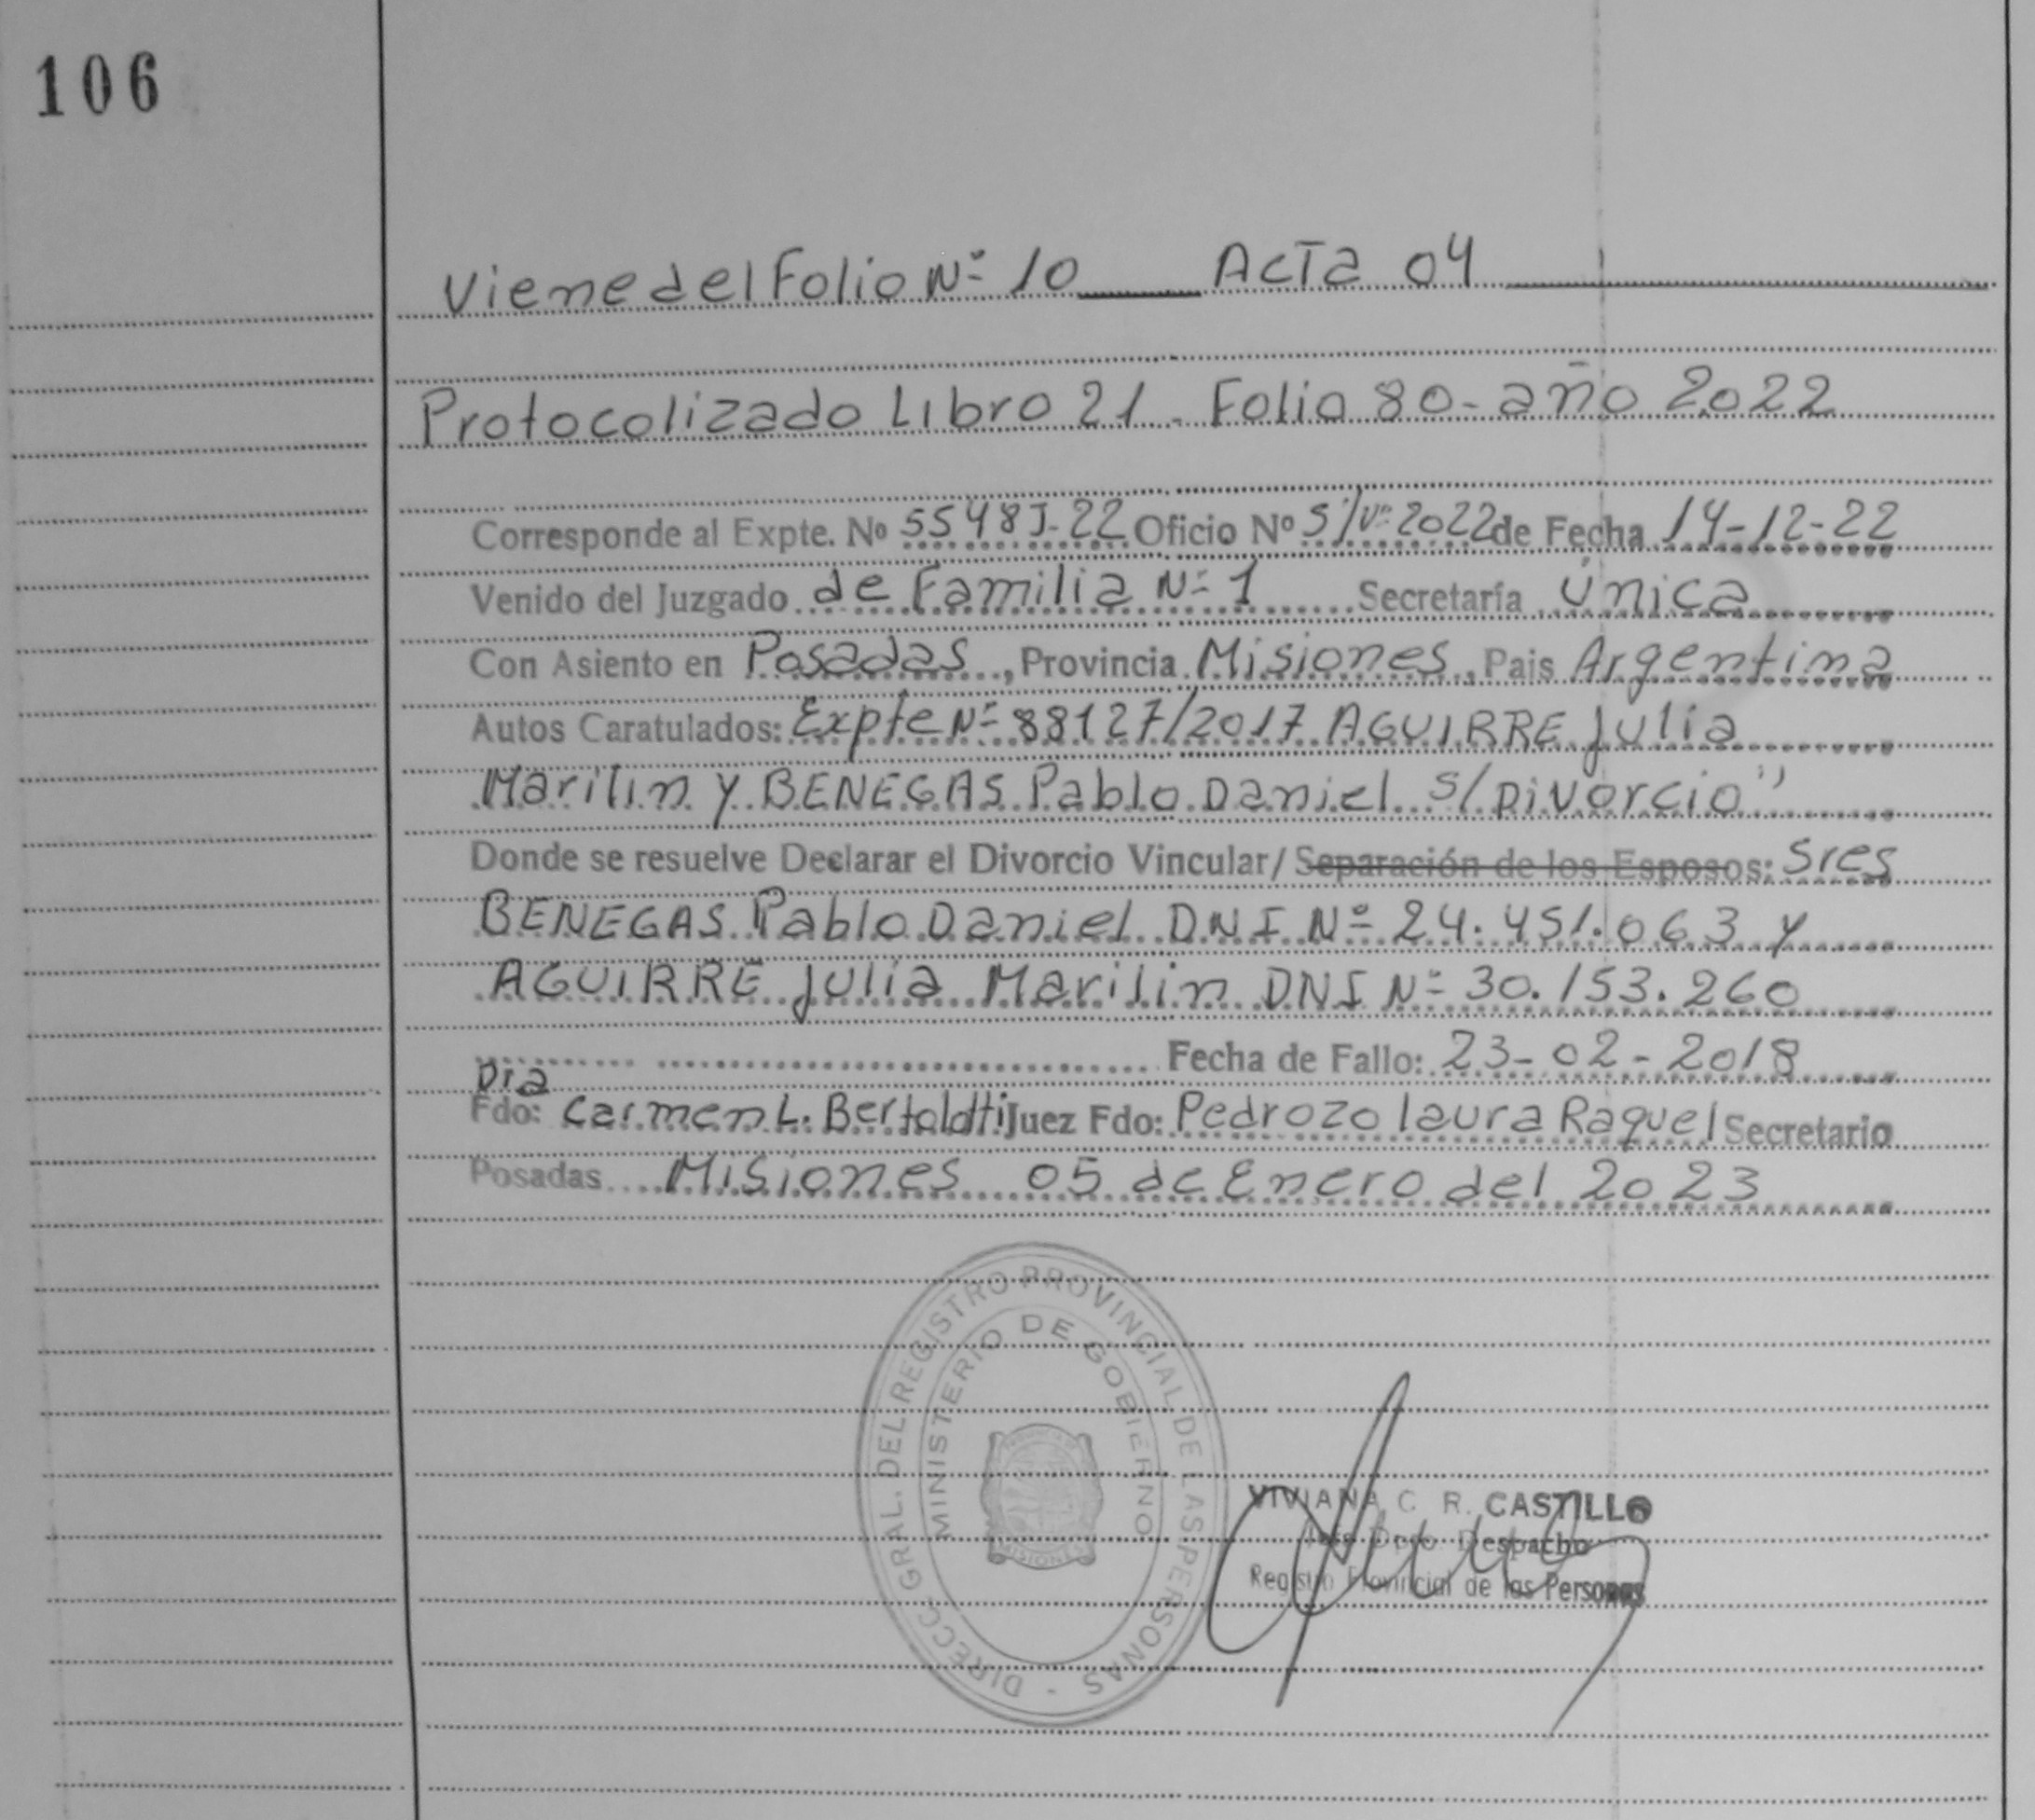 106
Viene del Folio Nº 10 ACTA 04
Protocolizado Libro 21 - Folio 80 - año 2022
Corresponde al Expte. Nº 5548J-22 Oficio Nº S/Nº 2022 de Fecha 14-12-22
Venido del Juzgado de Familia Nº 1 Secretaría Única
Con Asiento en Posadas, Provincia Misiones, Pais Argentina
Autos Caratulados: Expte Nº 88127/2017 AGUIRRE Julia
Marilin y BENEGAS Pablo Daniel s/ Divorcio"
Donde se resuelve Declarar el Divorcio Vincular/ Separación de los Esposos: Sres
BENEGAS Pablo Daniel DNI Nº 24.451.063 y
AGUIRRE Julia Marilin DNI Nº 30.153.260
Fecha de Fallo: 23-02-2018
Dra
Fdo: Carmen L. Bertolotti Juez Fdo: Pedrozo Laura Raquel Secretario
Posadas Misiones 05 de Enero del 2023
DIRECC. GRAL. DEL REGISTRO PROVINCIAL DE LAS PERSONAS -
MINISTERIO DE GOBIERNO
MISIONES
VIVIANA C. R. CASTILLO
Jefe Dpto. Despacho
Registro Provincial de las Personas